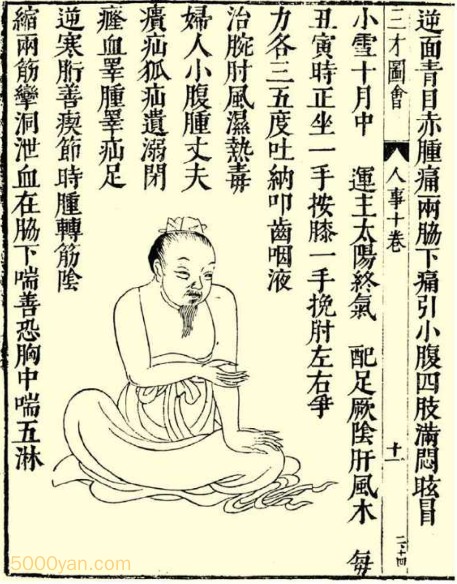 逆面青目赤腫痛兩脇下痛引小腹四肢滿悶眩冒
三才圖會
人事十卷
十一
小雪十月中 運主太陽終氣 配足厥陰肝風木 每
丑寅時正坐一手按膝一手挽肘左右爭
力各三五度吐納叩齒咽液
治腕肘風濕熱毒
婦人小腹腫丈夫
㿉疝狐疝遺溺閉
癃血睪腫睪疝足
逆寒胻善瘈節時腫轉筋陰
縮兩筋攣洞泄血在脇下喘善恐胸中喘五淋
5000yan.com